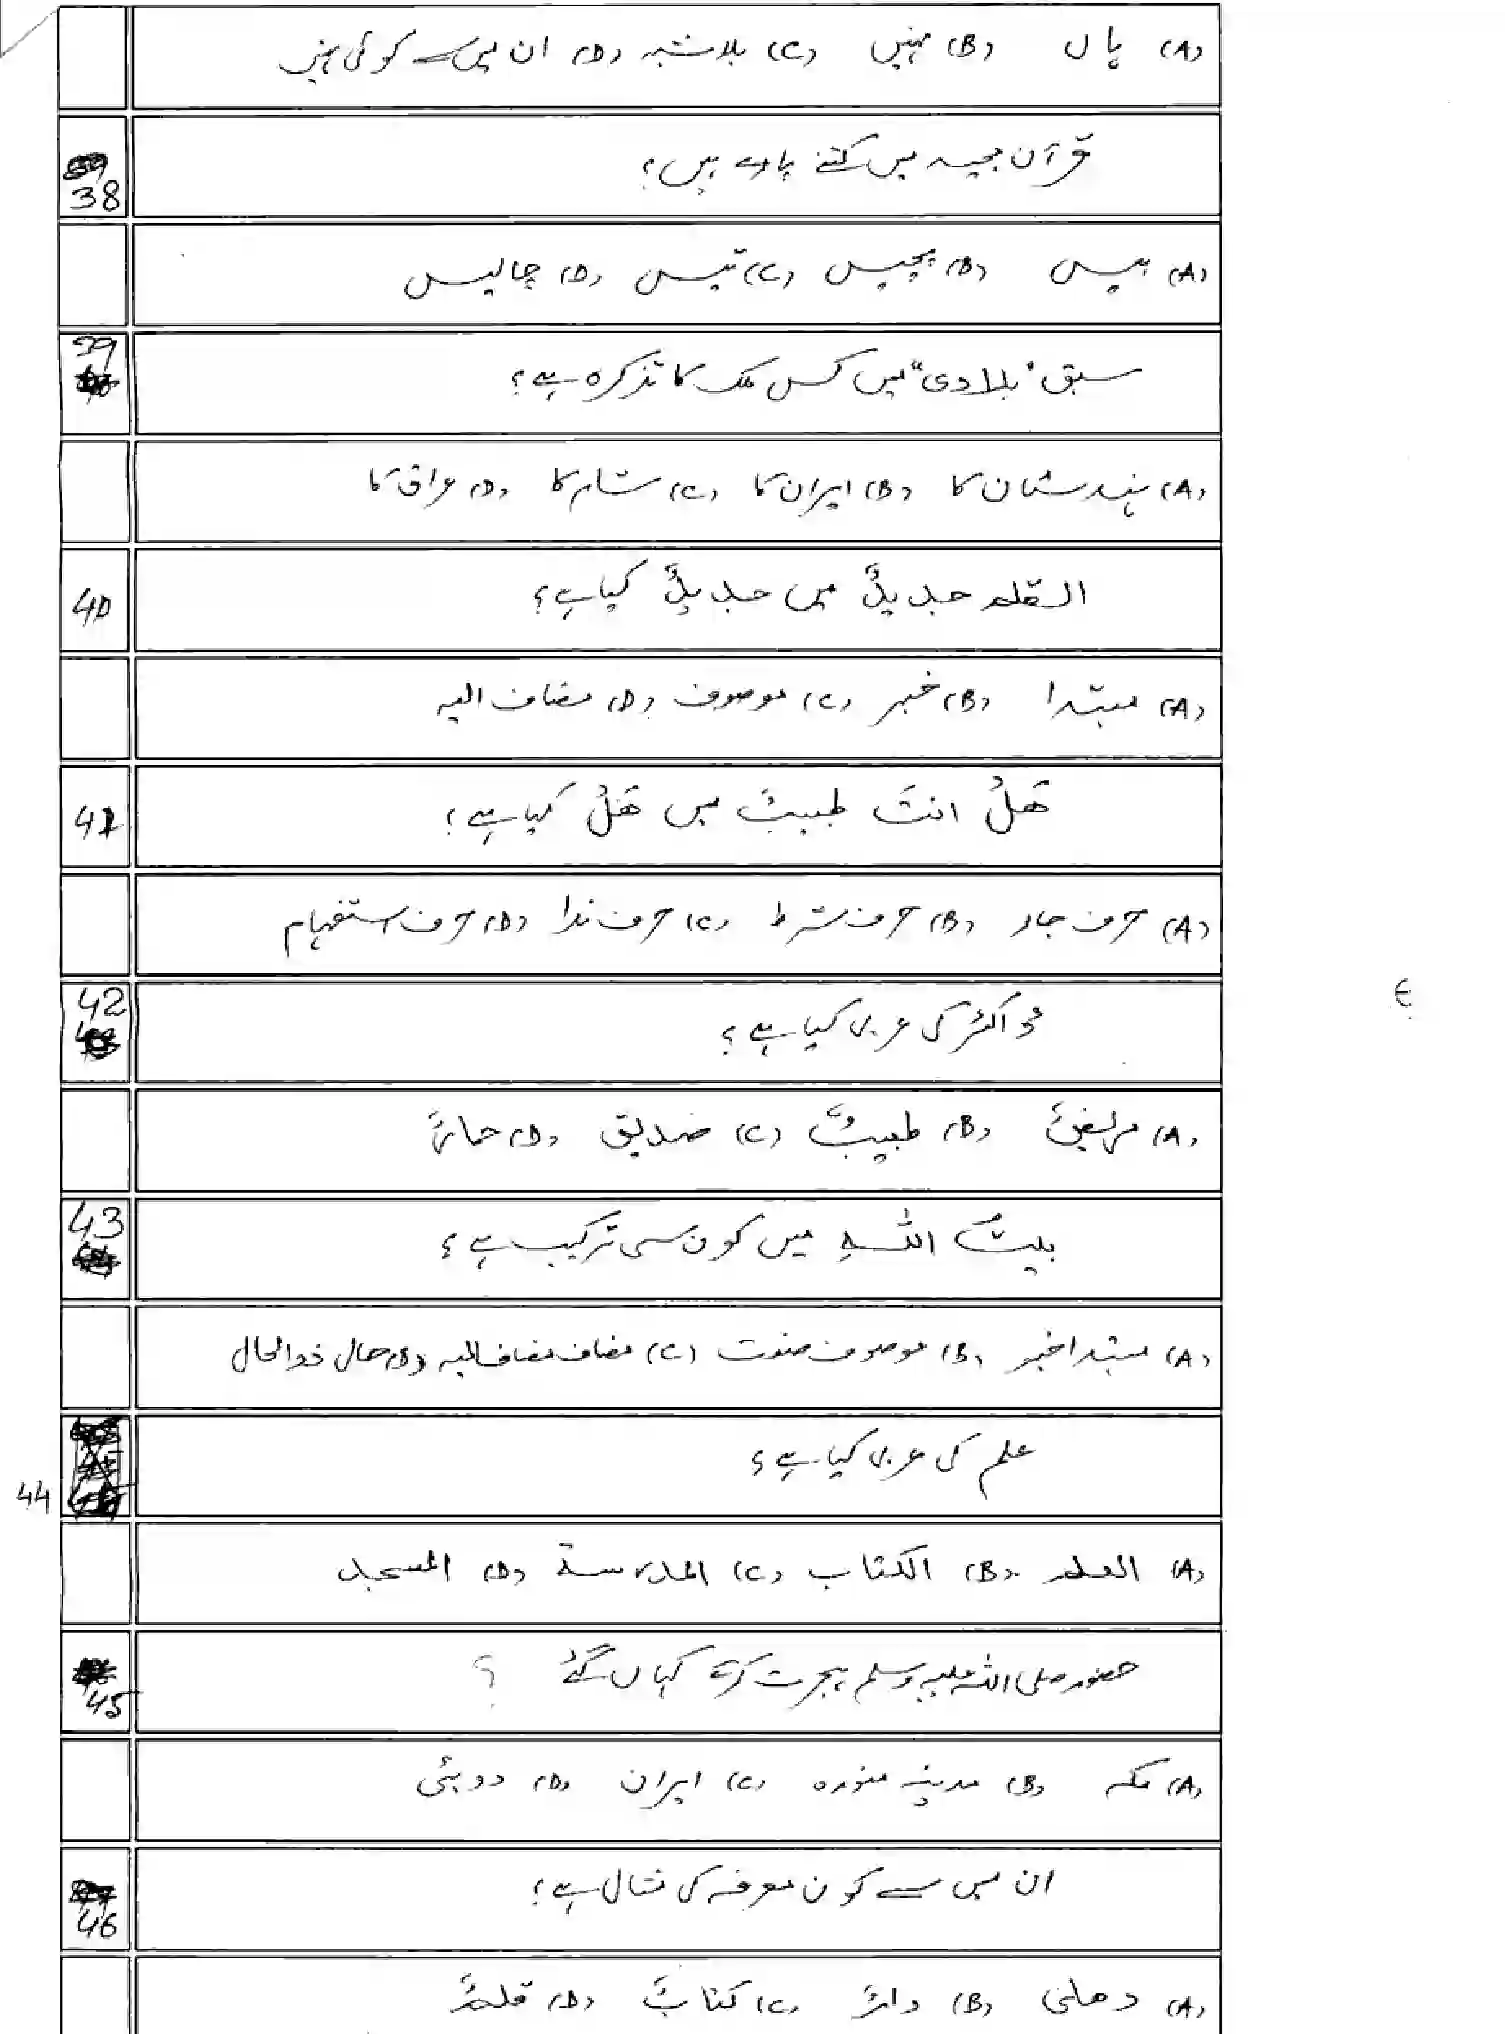 (A) ہاں (B) نہیں (C) بلاشبہ (D) ان میں سے کوئی نہیں
38 قرآن مجید میں کتنے پارے ہیں؟
(A) بیس (B) پچیس (C) تیس (D) چالیس
39 سبق "بلادی" میں کس ملک کا تذکرہ ہے؟
(A) ہندستان کا (B) ایران کا (C) شام کا (D) عراق کا
40 القلم جدیدٌ میں جدیدٌ کیا ہے؟
(A) مبتدا (B) خبر (C) موصوف (D) مضاف الیہ
41 هَلْ انتَ طبیبٌ میں هَلْ کیا ہے؟
(A) حرف جار (B) حرف شرط (C) حرف ندا (D) حرف استفہام
42 ڈاکٹر کی عربی کیا ہے؟
(A) مریضٌ (B) طبیبٌ (C) صدیق (D) حمارٌ
43 بیتُ اللہِ میں کون سی ترکیب ہے؟
(A) مبتدا خبر (B) موصوف صفت (C) مضاف مضاف الیہ (D) حال ذوالحال
44 علم کی عربی کیا ہے؟
(A) العلم (B) الکتاب (C) المدرسة (D) المسجد
45 حضور صلی اللہ علیہ وسلم ہجرت کرکے کہاں گئے ؟
(A) مکہ (B) مدینہ منورہ (C) ایران (D) دوبئی
46 ان میں سے کون معرفہ کی مثال ہے؟
(A) دھلی (B) دارٌ (C) کتابٌ (D) قلمٌ